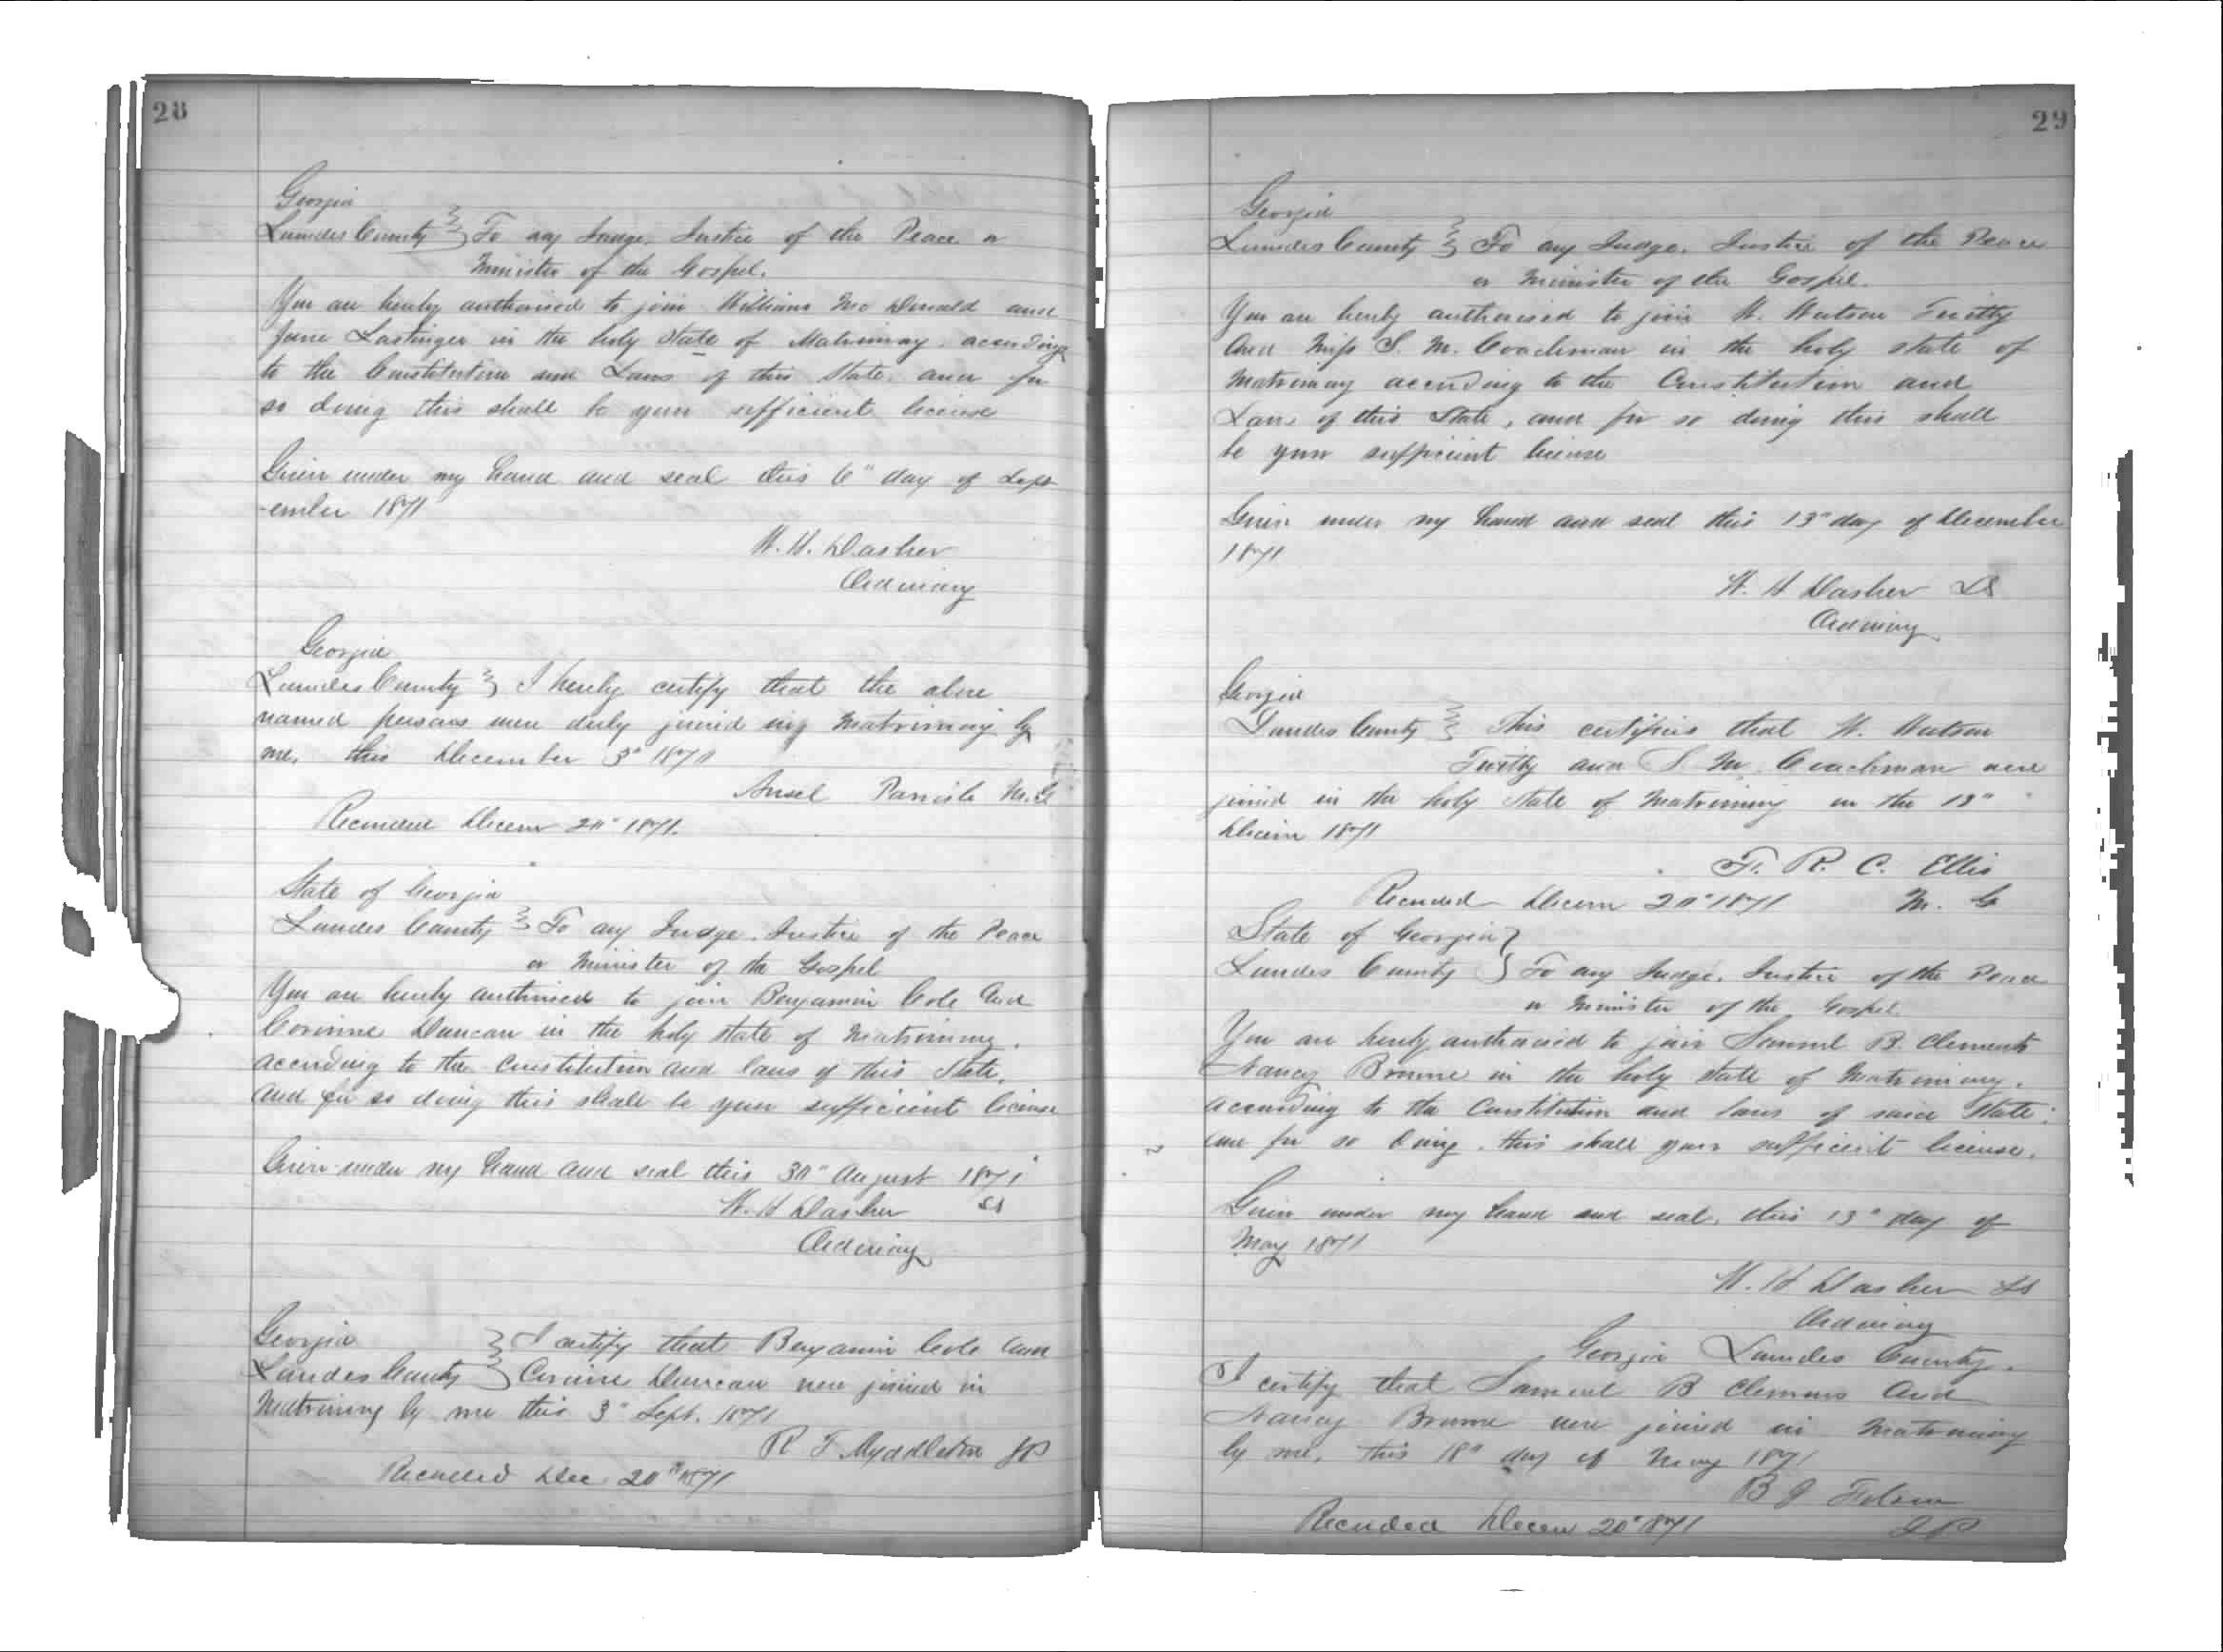 28
Georgia
Lowndes County } To any Judge, Justice of the Peace or
Minister of the Gospel.
You are hereby authorised to join William McDonald and
Jane Lastinger in the holy state of Matrimony according
to the Constitution and Laws of this State and for
so doing this shall be your sufficient license
Given under my hand and seal this 6" day of Sept
-ember 1871
W. H. Dasher
Ordinary
Georgia
Lowndes County } I hereby certify that the above
named persons were duly joined in matrimony by
me, this December 3" 1871
Ansel Parrish M.G
Recorded Decem 20" 1871.
State of Georgia
Lowndes County } To any Judge, Justice of the Peace
or Minister of the Gospel
You are hereby authorised to join Benjamin Cole and
Corinne Duncan in the holy state of Matrimony,
according to the Constitution and laws of this State,
and for so doing this shall be your sufficient license
Given under my hand and seal this 30" August 1871
W. H Dasher LS
Ordinary
Georgia } I certify that Benjamin Cole and
Lowndes County } Corinne Duncan were joined in
Matrimony by me this 3" Sept. 1871
R T. Myddleton JP
Recorded Dec. 20" 1871
29
Georgia
Lowndes County } To any Judge, Justice of the Peace
or Minister of the Gospel.
You are hereby authorised to join W. Watson
and Miss S. M. Coachman in the holy state of
Matrimony according to the Constitution and
Laws of this State, and for so doing this shall
be your sufficient license
Given under my hand and seal this 13" day of December
1871
W. H Dasher LS
Ordinary
Georgia
Lowndes County } This certifies that W. Watson
and S. M. Coachman were
joined in the holy state of Matrimony on the 13"
Decem 1871
F. R. C. Ellis
Recorded Decem 20" 1871 M. G
State of Georgia }
Lowndes County } To any Judge, Justice of the Peace
or Minister of the Gospel.
You are hereby authorised to join Samuel B. Clements
Nancy Browne in the holy state of Matrimony,
according to the Constitution and laws of said State;
and for so doing, this shall your sufficient license.
Given under my hand and seal, this 13" day of
May 1871
W. H Dasher LS
Ordinary
Georgia Lowndes County.
I certify that Samuel B Clemens and
Nancy Browne were joined in Matrimony
by me, this 18" day of May 1871
B J Folsom
Recorded Decem 20" 1871 JP